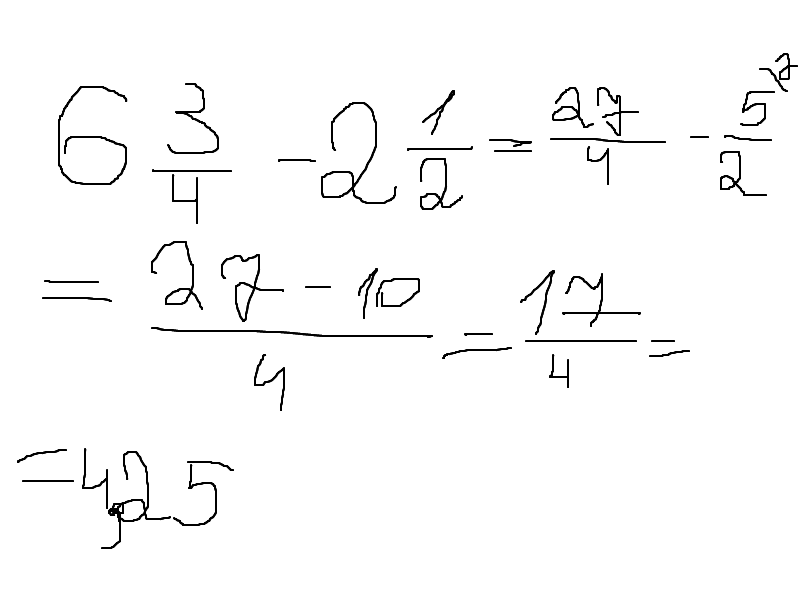 6 3/4 - 2 1/2 = 27/4 - 5/2 \2
= 27 - 10/4 = 17/4 =
= 4,25